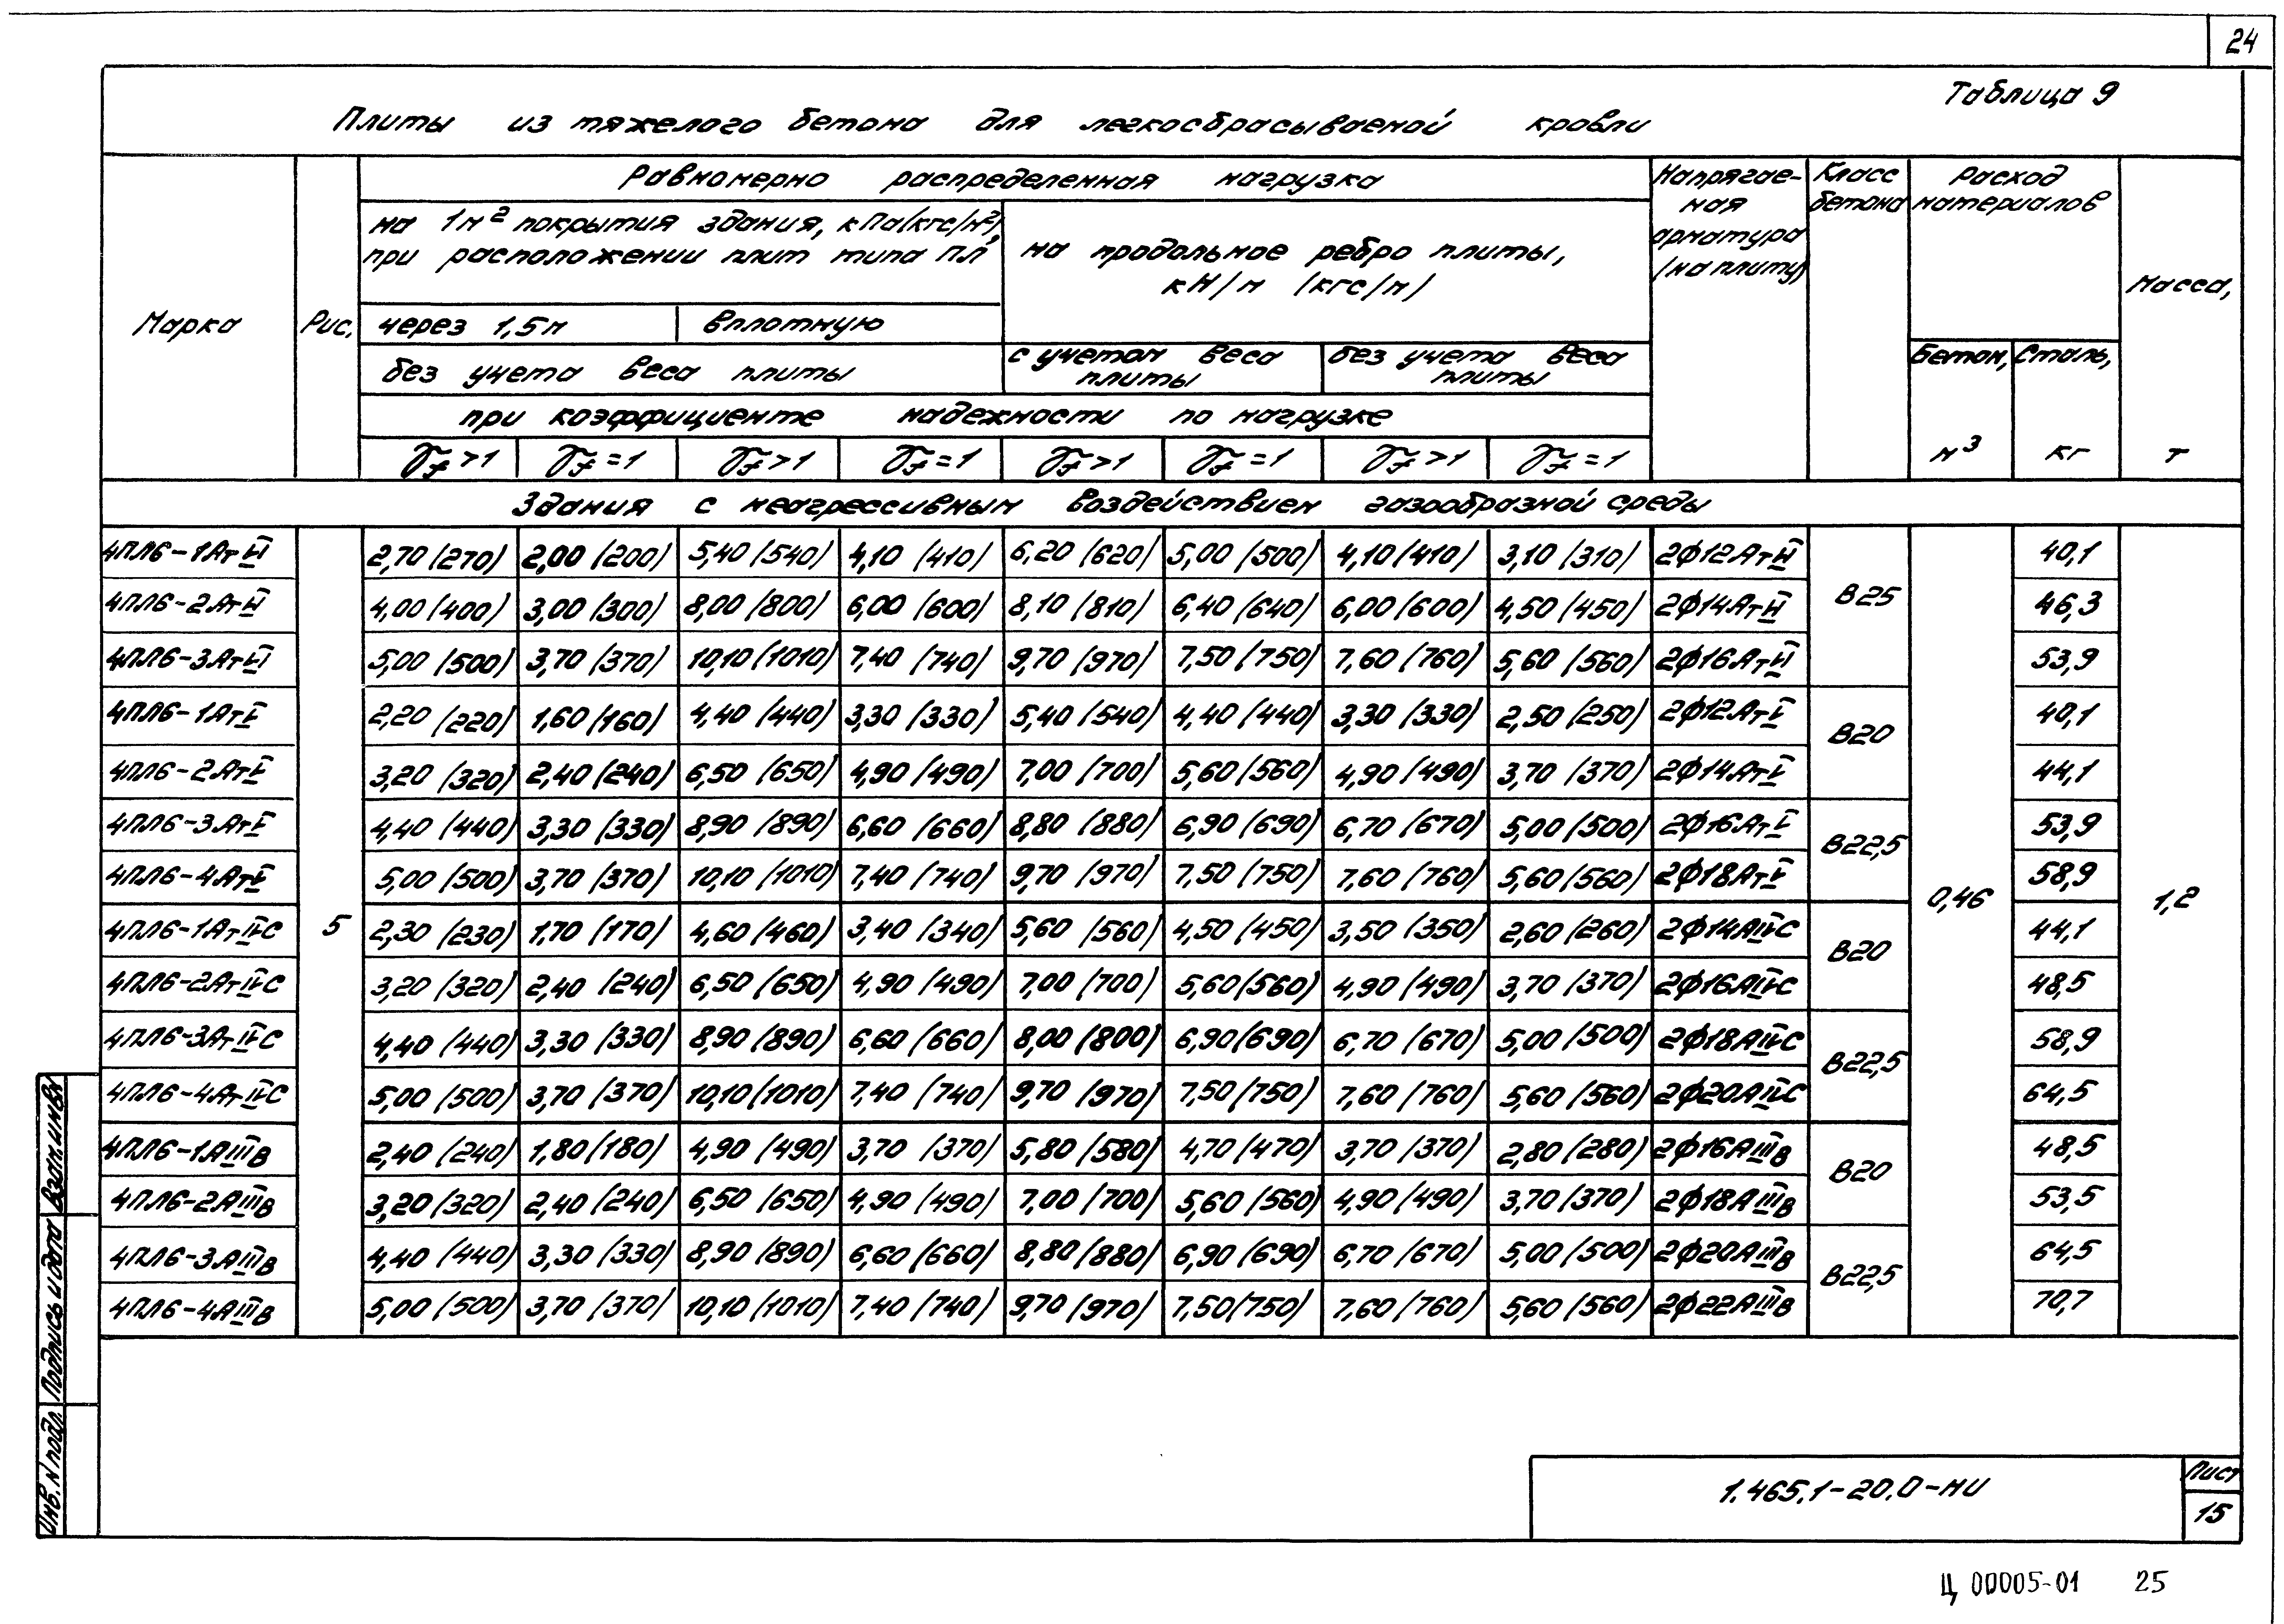 24
Таблица 9
Плиты из тяжелого бетона для легкосбрасываемой кровли
Марка
Рис.
Равномерно распределенная нагрузка
на 1м² покрытия здания, кПа(кгс/м²),
при расположении плит типа ПЛ
на продольное ребро плиты,
кН/м (кгс/м)
через 1,5м
вплотную
без учета веса плиты
с учетом веса
плиты
без учета веса
плиты
при коэффициенте надежности по нагрузке
γf >1 γf =1 γf >1 γf =1 γf >1 γf =1 γf >1 γf =1
Напрягае-
мая
арматура
(на плиту)
Класс
бетона
Расход
материалов
Бетон,
м³
Сталь,
кг
Масса,
т
Здания с неагрессивным воздействием газообразной среды
4ПЛ6-1АтVI 2,70 (270) 2,00 (200) 5,40 (540) 4,10 (410) 6,20 (620) 5,00 (500) 4,10 (410) 3,10 (310) 2ф12АтVI 40,1
4ПЛ6-2АтVI 4,00 (400) 3,00 (300) 8,00 (800) 6,00 (600) 8,10 (810) 6,40 (640) 6,00 (600) 4,50 (450) 2ф14АтVI В25 46,3
4ПЛ6-3АтVI 5,00 (500) 3,70 (370) 10,10 (1010) 7,40 (740) 9,70 (970) 7,50 (750) 7,60 (760) 5,60 (560) 2ф16АтVI 53,9
4ПЛ6-1АтV 2,20 (220) 1,60 (160) 4,40 (440) 3,30 (330) 5,40 (540) 4,40 (440) 3,30 (330) 2,50 (250) 2ф12АтV В20 40,1
4ПЛ6-2АтV 3,20 (320) 2,40 (240) 6,50 (650) 4,90 (490) 7,00 (700) 5,60 (560) 4,90 (490) 3,70 (370) 2ф14АтV 44,1
4ПЛ6-3АтV 4,40 (440) 3,30 (330) 8,90 (890) 6,60 (660) 8,80 (880) 6,90 (690) 6,70 (670) 5,00 (500) 2ф16АтV В22,5 53,9
4ПЛ6-4АтV 5,00 (500) 3,70 (370) 10,10 (1010) 7,40 (740) 9,70 (970) 7,50 (750) 7,60 (760) 5,60 (560) 2ф18АтV 58,9
4ПЛ6-1АтIVС 5 2,30 (230) 1,70 (170) 4,60 (460) 3,40 (340) 5,60 (560) 4,50 (450) 3,50 (350) 2,60 (260) 2ф14АIVС В20 0,46 44,1 1,2
4ПЛ6-2АтIVС 3,20 (320) 2,40 (240) 6,50 (650) 4,90 (490) 7,00 (700) 5,60 (560) 4,90 (490) 3,70 (370) 2ф16АIVС 48,5
4ПЛ6-3АтIVС 4,40 (440) 3,30 (330) 8,90 (890) 6,60 (660) 8,00 (800) 6,90 (690) 6,70 (670) 5,00 (500) 2ф18АIVС В22,5 58,9
4ПЛ6-4АтIVС 5,00 (500) 3,70 (370) 10,10 (1010) 7,40 (740) 9,70 (970) 7,50 (750) 7,60 (760) 5,60 (560) 2ф20АIVС 64,5
4ПЛ6-1АIIIВ 2,40 (240) 1,80 (180) 4,90 (490) 3,70 (370) 5,80 (580) 4,70 (470) 3,70 (370) 2,80 (280) 2ф16АIIIВ В20 48,5
4ПЛ6-2АIIIВ 3,20 (320) 2,40 (240) 6,50 (650) 4,90 (490) 7,00 (700) 5,60 (560) 4,90 (490) 3,70 (370) 2ф18АIIIВ 53,5
4ПЛ6-3АIIIВ 4,40 (440) 3,30 (330) 8,90 (890) 6,60 (660) 8,80 (880) 6,90 (690) 6,70 (670) 5,00 (500) 2ф20АIIIВ В22,5 64,5
4ПЛ6-4АIIIВ 5,00 (500) 3,70 (370) 10,10 (1010) 7,40 (740) 9,70 (970) 7,50 (750) 7,60 (760) 5,60 (560) 2ф22АIIIВ 70,7
Инв. N подл.
Подпись и дата
Взам. инв.
1.465.1-20.0-НИ
Лист
15
Ц 00005-01 25